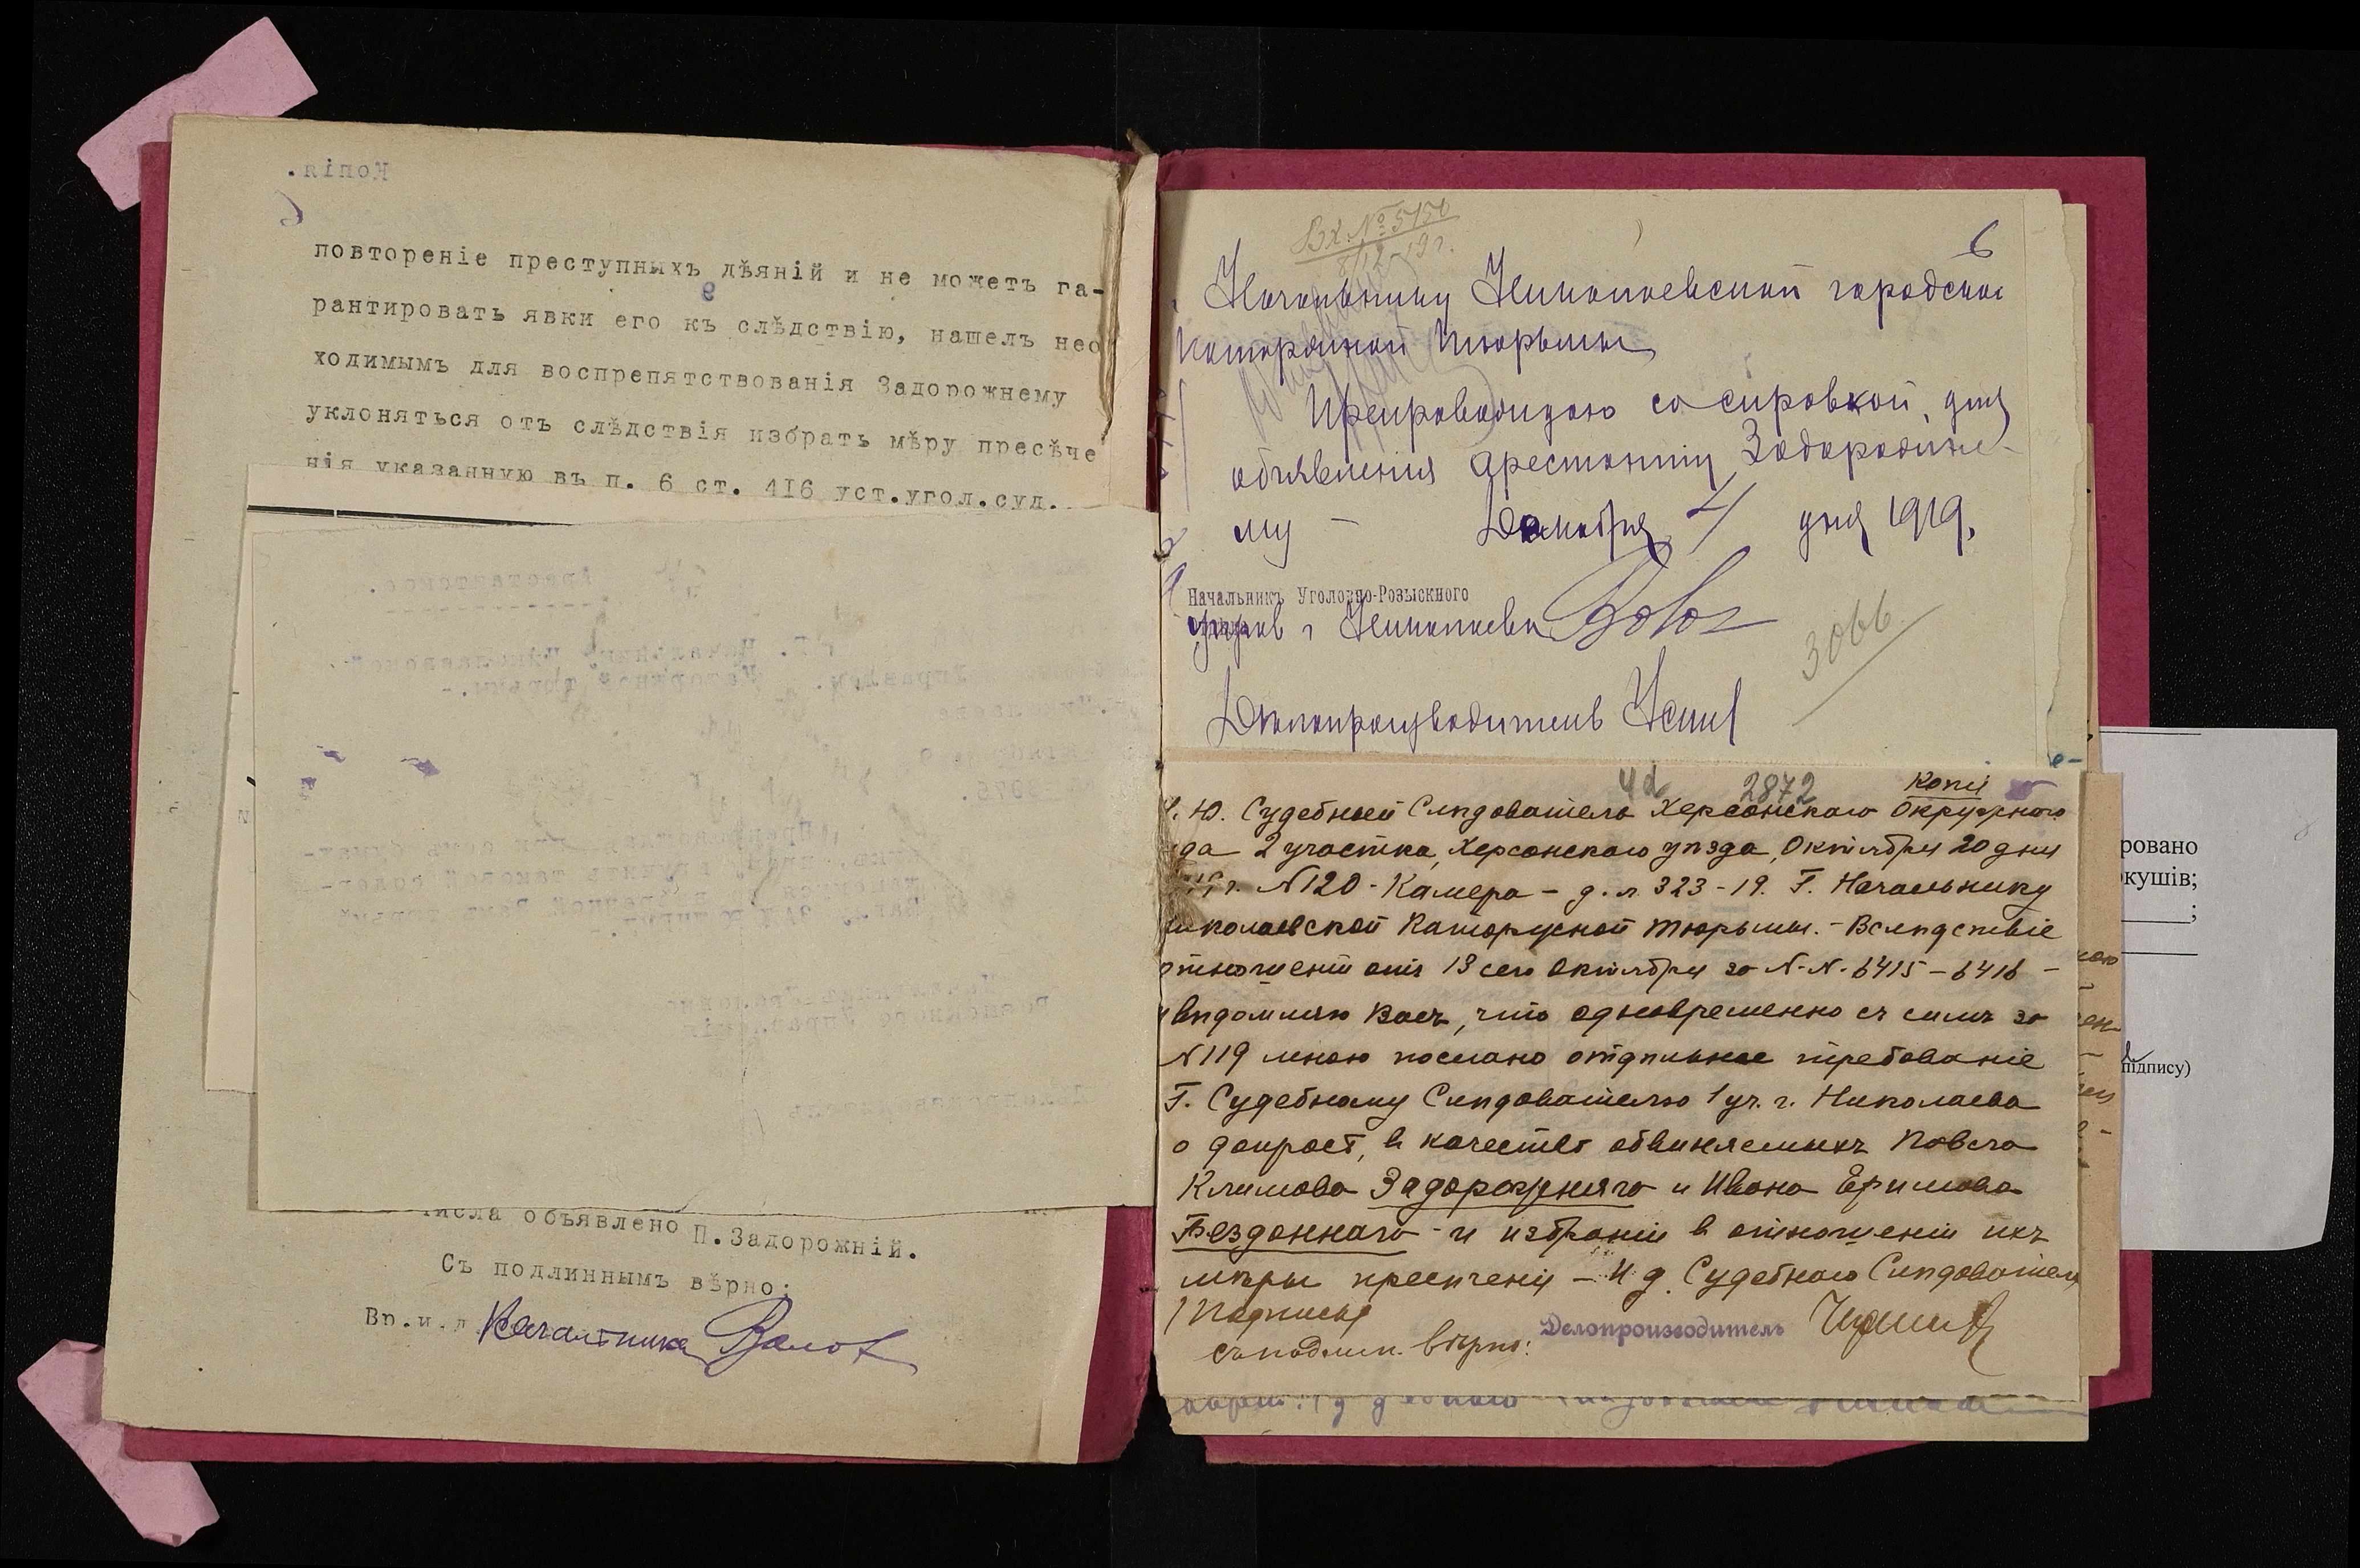 Копія.
повтореніе преступныхъ дѣяній и не можетъ га-
рантировать явки его къ слѣдствію, нашелъ нео
ходимымъ для воспрепятствованія Задорожнему
уклоняться отъ слѣдствія избрать мѣру пресѣче
нія указанную въ п. 6 ст. 416 уст.угол.суд.
числа объявлено П.Задорожній.
Съ подлиннымъ вѣрно:
Вр.и.д. Начальника
Вх. № 5150
8/12-19 г.
6
Начальнику Николаевской городской
каторжной тюрьмы
Препровождаю со справкой, для
объявления арестанту Задорожне-
му – Декабря 4 дня 1919.
Начальникъ Уголовно-Розыскного
управ г Николаева
3066
Делопроизводитель
2872
Копія
И. Ю. Судебный Слѣдователь Херсонскаго Окружного
да 2 участка, Херсонскаго уѣзда, Октября 20 дня
г. N 120 - Камера - д. л. 323 - 19. Г. Начальнику
иколаевской Каторжной тюрьмы. - Вслѣдствіе
отношенія отъ 13 сего Октября за N-N. 6415 - 6416 -
увѣдомляю Васъ, что одновременно съ симъ за
N 119 мною послано отдѣльное требованіе
Г. Судебному Слѣдователю 1 уч. г. Николаева
о допросѣ, в качествѣ обвиняемыхъ Павла
Климова Задорожняго и Ивана Ефимова
Бездоннаго - и избраніи в отношеніи ихъ
мѣры пресѣченія - И д. Судебнаго Слѣдователя
/Подпись/
съ подлин. вѣрно: Делопроизводитель
ровано
окушів;
;
підпису)